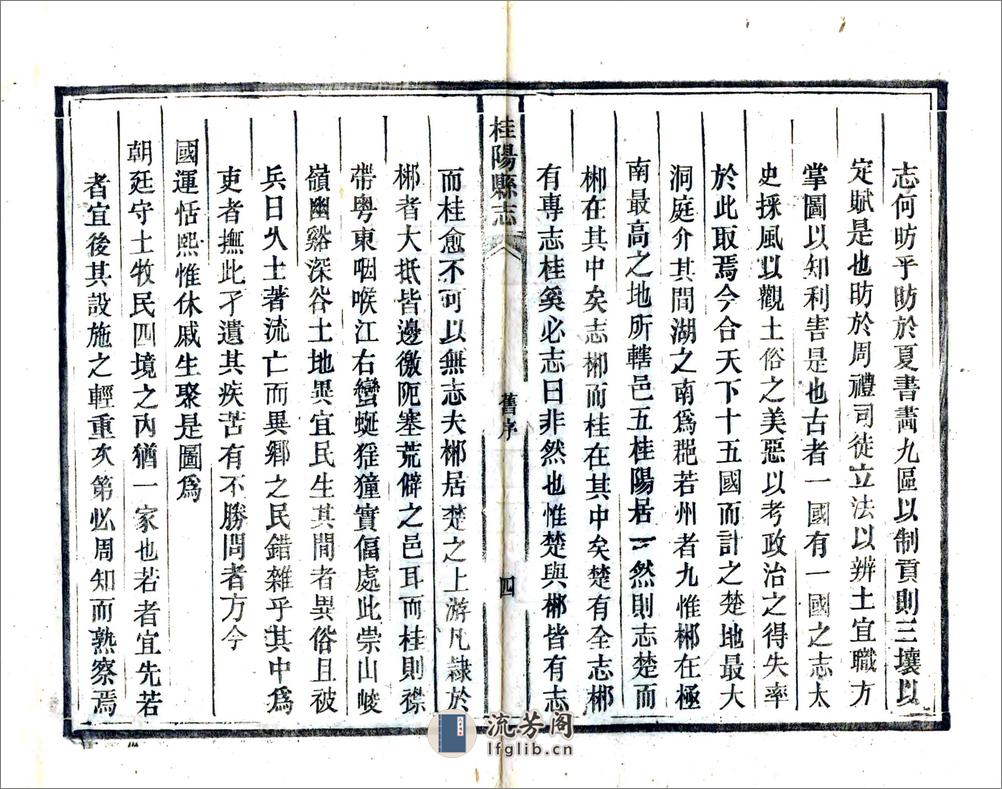 志何昉乎昉於夏書畫九區以制貢則三壤以
定賦是也昉於周禮司徒立法以辨土宜職方
掌圖以知利害是也古者一國有一國之志太
史採風以觀土俗之美惡以考政治之得失率
於此取焉今合天下十五國而計之楚地最大
洞庭介其間湖之南爲郡若州者九惟郴在極
南最高之地所轄邑五桂陽居一然則志楚而
郴在其中矣志郴而桂在其中矣楚有全志郴
有專志桂奚必志曰非然也惟楚與郴皆有志
桂陽縣志
舊序
四
而桂愈不可以無志夫郴居楚之上游凡隷於
郴者大抵皆邊徼阨塞荒僻之邑耳而桂則襟
帶粵東咽喉江右蠻蜒猺獞實偪處此崇山峻
嶺幽谿深谷土地異宜民生其間者異俗且被
兵日久土著流亡而異鄉之民錯雜乎其中爲
吏者撫此孑遺其疾苦有不勝問者方今
國運恬熙惟休戚生聚是圖爲
朝廷守土牧民四境之內猶一家也若者宜先若
者宜後其設施之輕重次第必周知而熟察焉
流芳阁
lfglib.cn